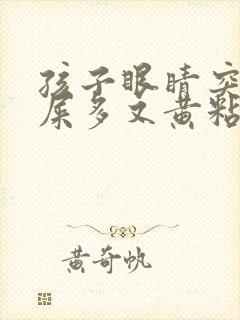 孩子眼睛突
屎多又黄粘
黄奇帆